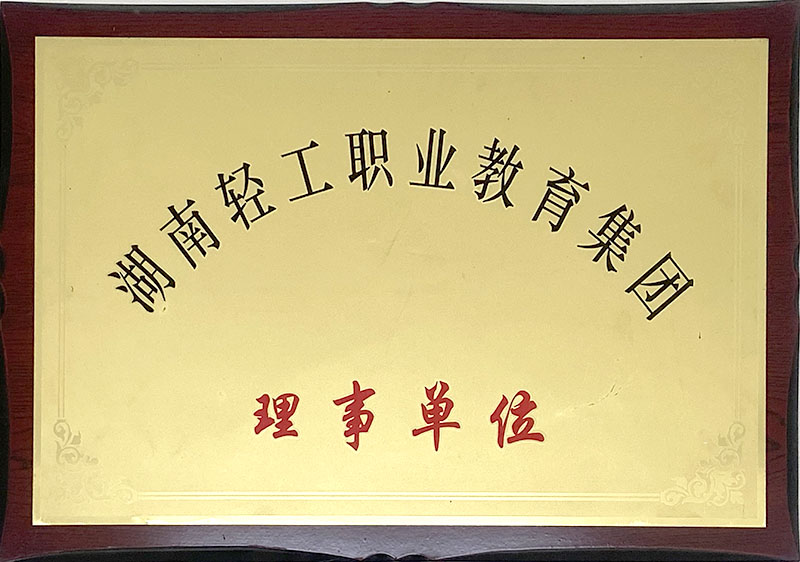 湖南轻工职业教育集团
理事单位